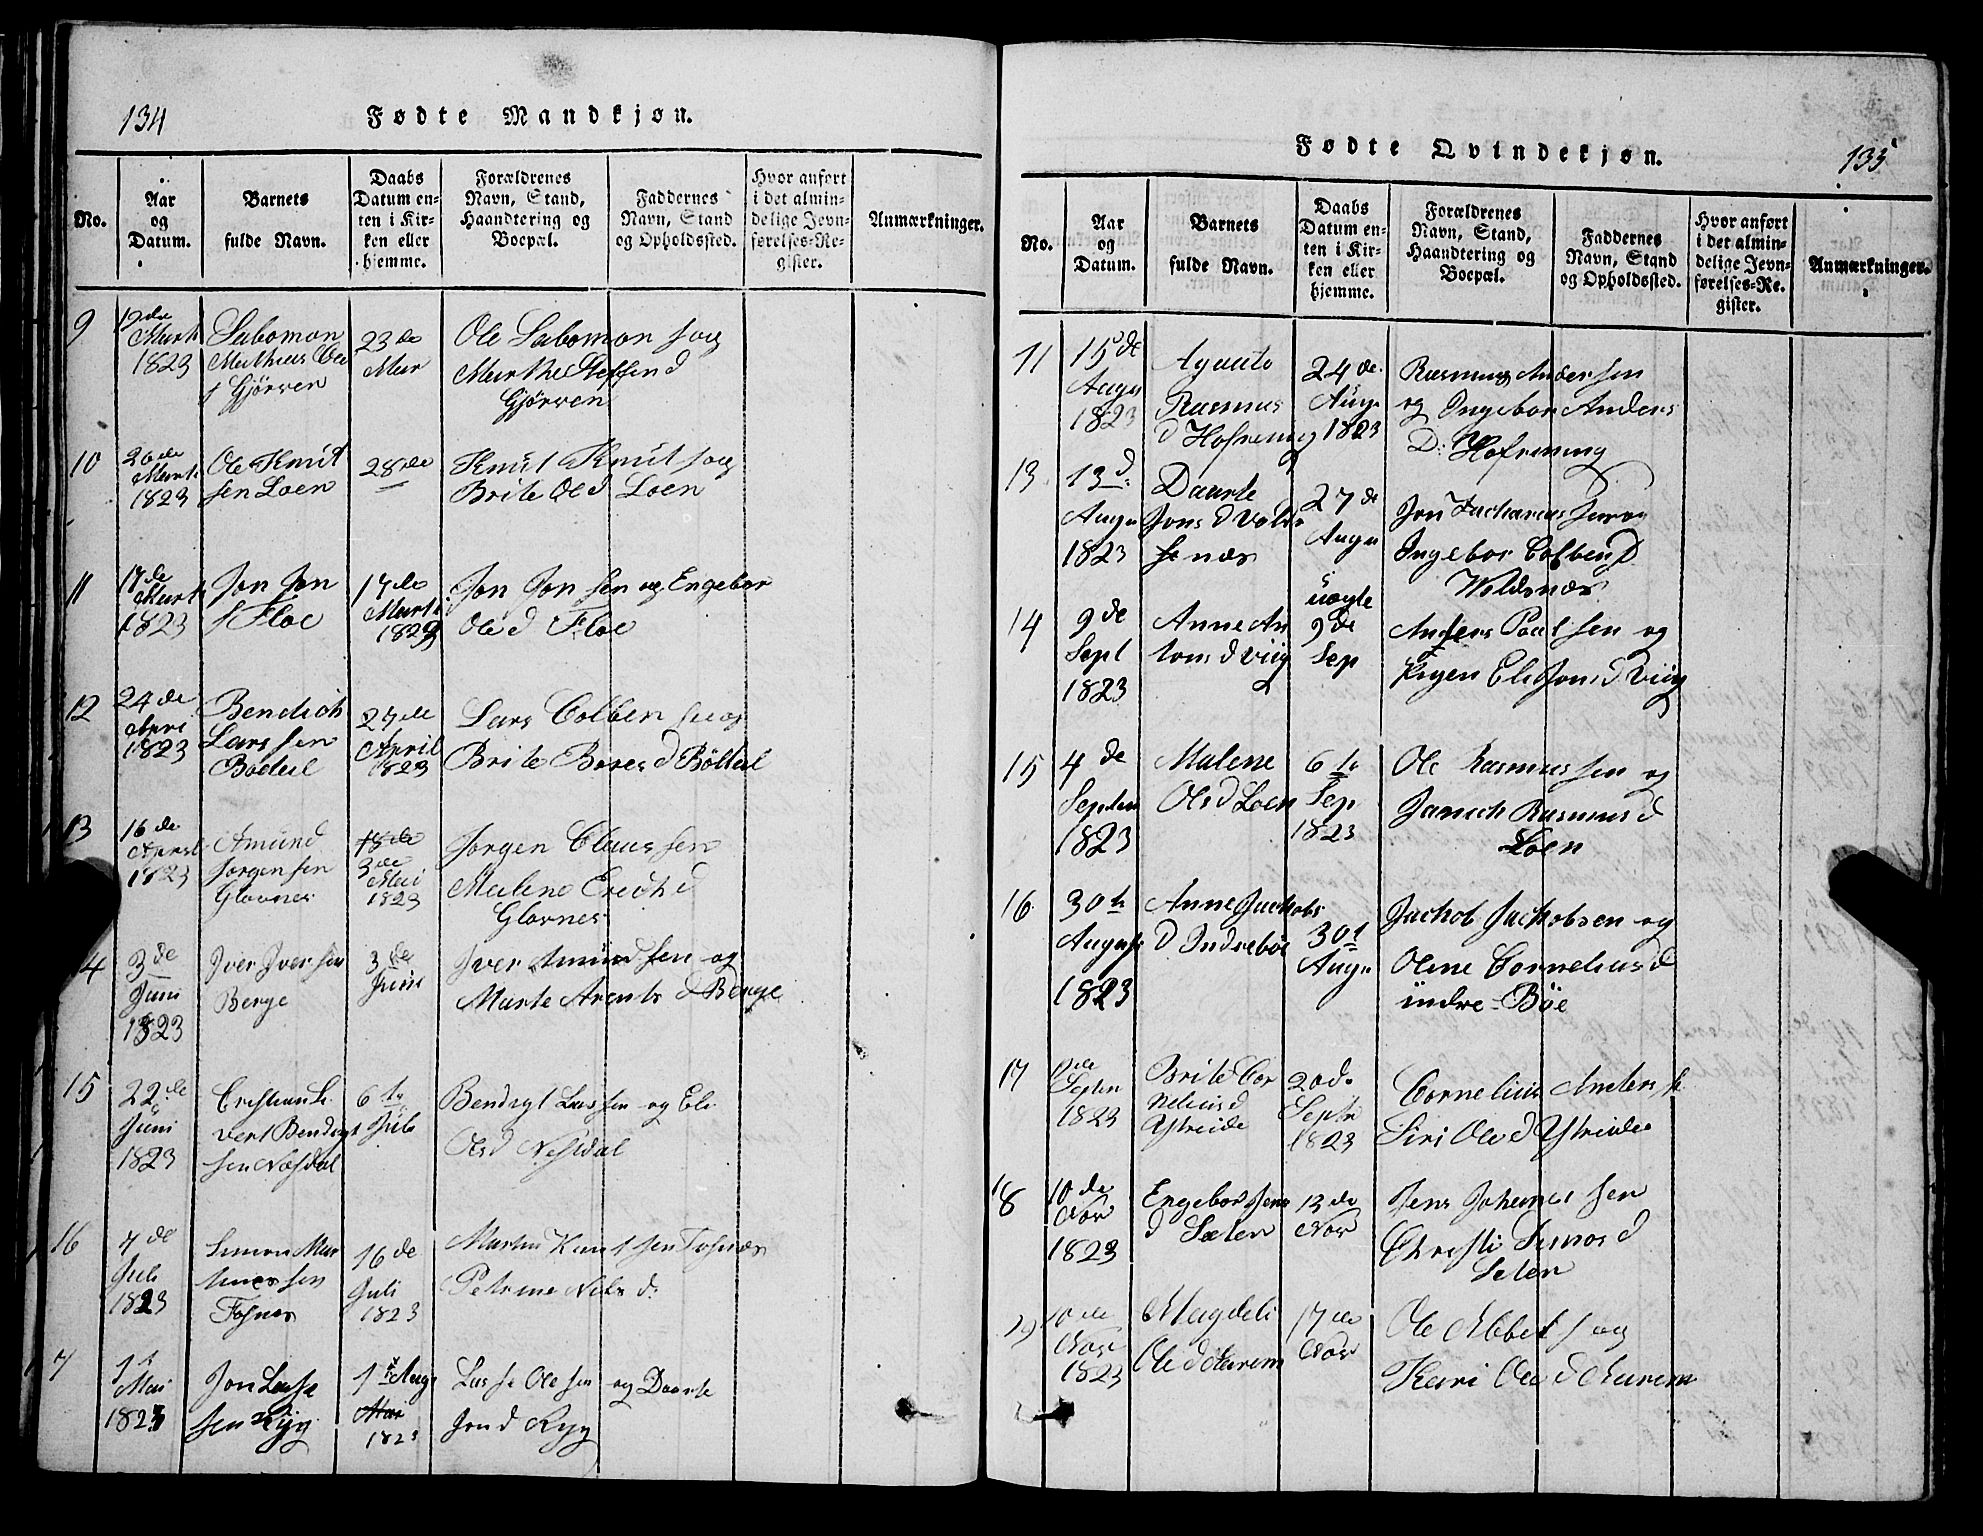 134
Fødte Mandkjøn.
No.
Aar og Datum.
Barnets fulde Navn.
Daabs Datum enten i Kirken eller hjemme.
Forældrenes Navn, Stand, Haandtering og Boepæl.
Faddernes Navn, Stand og Opholdssted.
Hvor anført i det almindelige Jevnførelses-Register.
Anmærkninger.
9
19de Marti 1823
Salomon
Mathias Ole
s Gjørven
23de
Mar
Ole Salomon s og
Marthe Steffen d
Gjørven
10
20de Marti 1823
Ole Knut
sen Loen
28de
Knut Knut s og
Brite Ole d Loen
11
17de Marti 1823
Jon Jon
s Floe
17de
Marti
1823
Jon Jon sen og Engebor
Ole d Floe
12
24de April 1823
Bendich
Lars sen
Bødal
27de
April
1823
Lars Colben s og
Brite Bores d Bödal
13
16de April 1823
Amund
Jørgen sen
Glavnes
18de
3de
Mai
1823
Jørgen Claus sen
Malene Ered d
Glavnes
14
3de
Juni
1823
Iver Iver sen
Berge
3de
Juni
Iver Amund sen og
Marte Arents d Berge
15
22de
Juni
1823
vert Bendigt
sen Næsdal
6te
Juli
Bendigt Las sen og Eli
Ols d Nesdal
16
7de
Juli
1823
Simon Mar
tines sen
Fosnes
16de
Juli
1823
Martin Knut sen Fosnæs
Petrine Nils d:
7
1t
Mai
1823
Jon Lasse
sen Ryg
1t Aug
Mai
1823
Lasse Ole sen og Daarte
Jon d Ryg
Fødte Qvindekjøn.
135
No.
Aar og Datum.
Barnets fulde Navn.
Daabs Datum enten i Kirken eller hjemme.
Forældrenes Navn, Stand, Haandtering og Boepæl.
Faddernes Navn, Stand og Opholdssted.
Hvor anført i det almindelige Jevnførelses-Register.
Anmærkninger.
11
15de
Augu
1823
Agaate
Rasmus
d Hofrening
24de
Augu
1823
Rasmus Ander sen
og Ingebor Anders
D: Hofrening
13
13d:
Augu
1823
Daarte
Jons d Vols
næs
27de
Augu
Jon Zacharias sen og
Ingebor Colben D
Woldsnæs
14
9de
Sept
1823
Anne An
tons d Viig
uægte
9de
Sep
Anders Poul sen og
Pigen Eli Jons d Viig
15
4de
Septem
1823
Malene
Ols d Loen
6te
Sep
1823
Ole Rasmus sen og
Janich Rasmus d
Loen
16
30te
August
1823
Anne Jachobs
d Indrebøe
30t
Augu
Jachob Jachobsen og
Oline Cornelius d
indre-Böe
17
Septem
1823
Brite Cor
nelius d
Ytreide
20de
Septr
1823
Cornelius Anders s
Siri Ole d Ytreide
18
10de
Nov
1823
Engebor Jens
d Sæten
13de
Nov
Jens Johannes sen
Christi Simos d
Seten
19
10de
Nov
1823
Magdeli
Ole d Aurem
17de
Nov
Ole Abbet s og
Kari Ole d Aurem